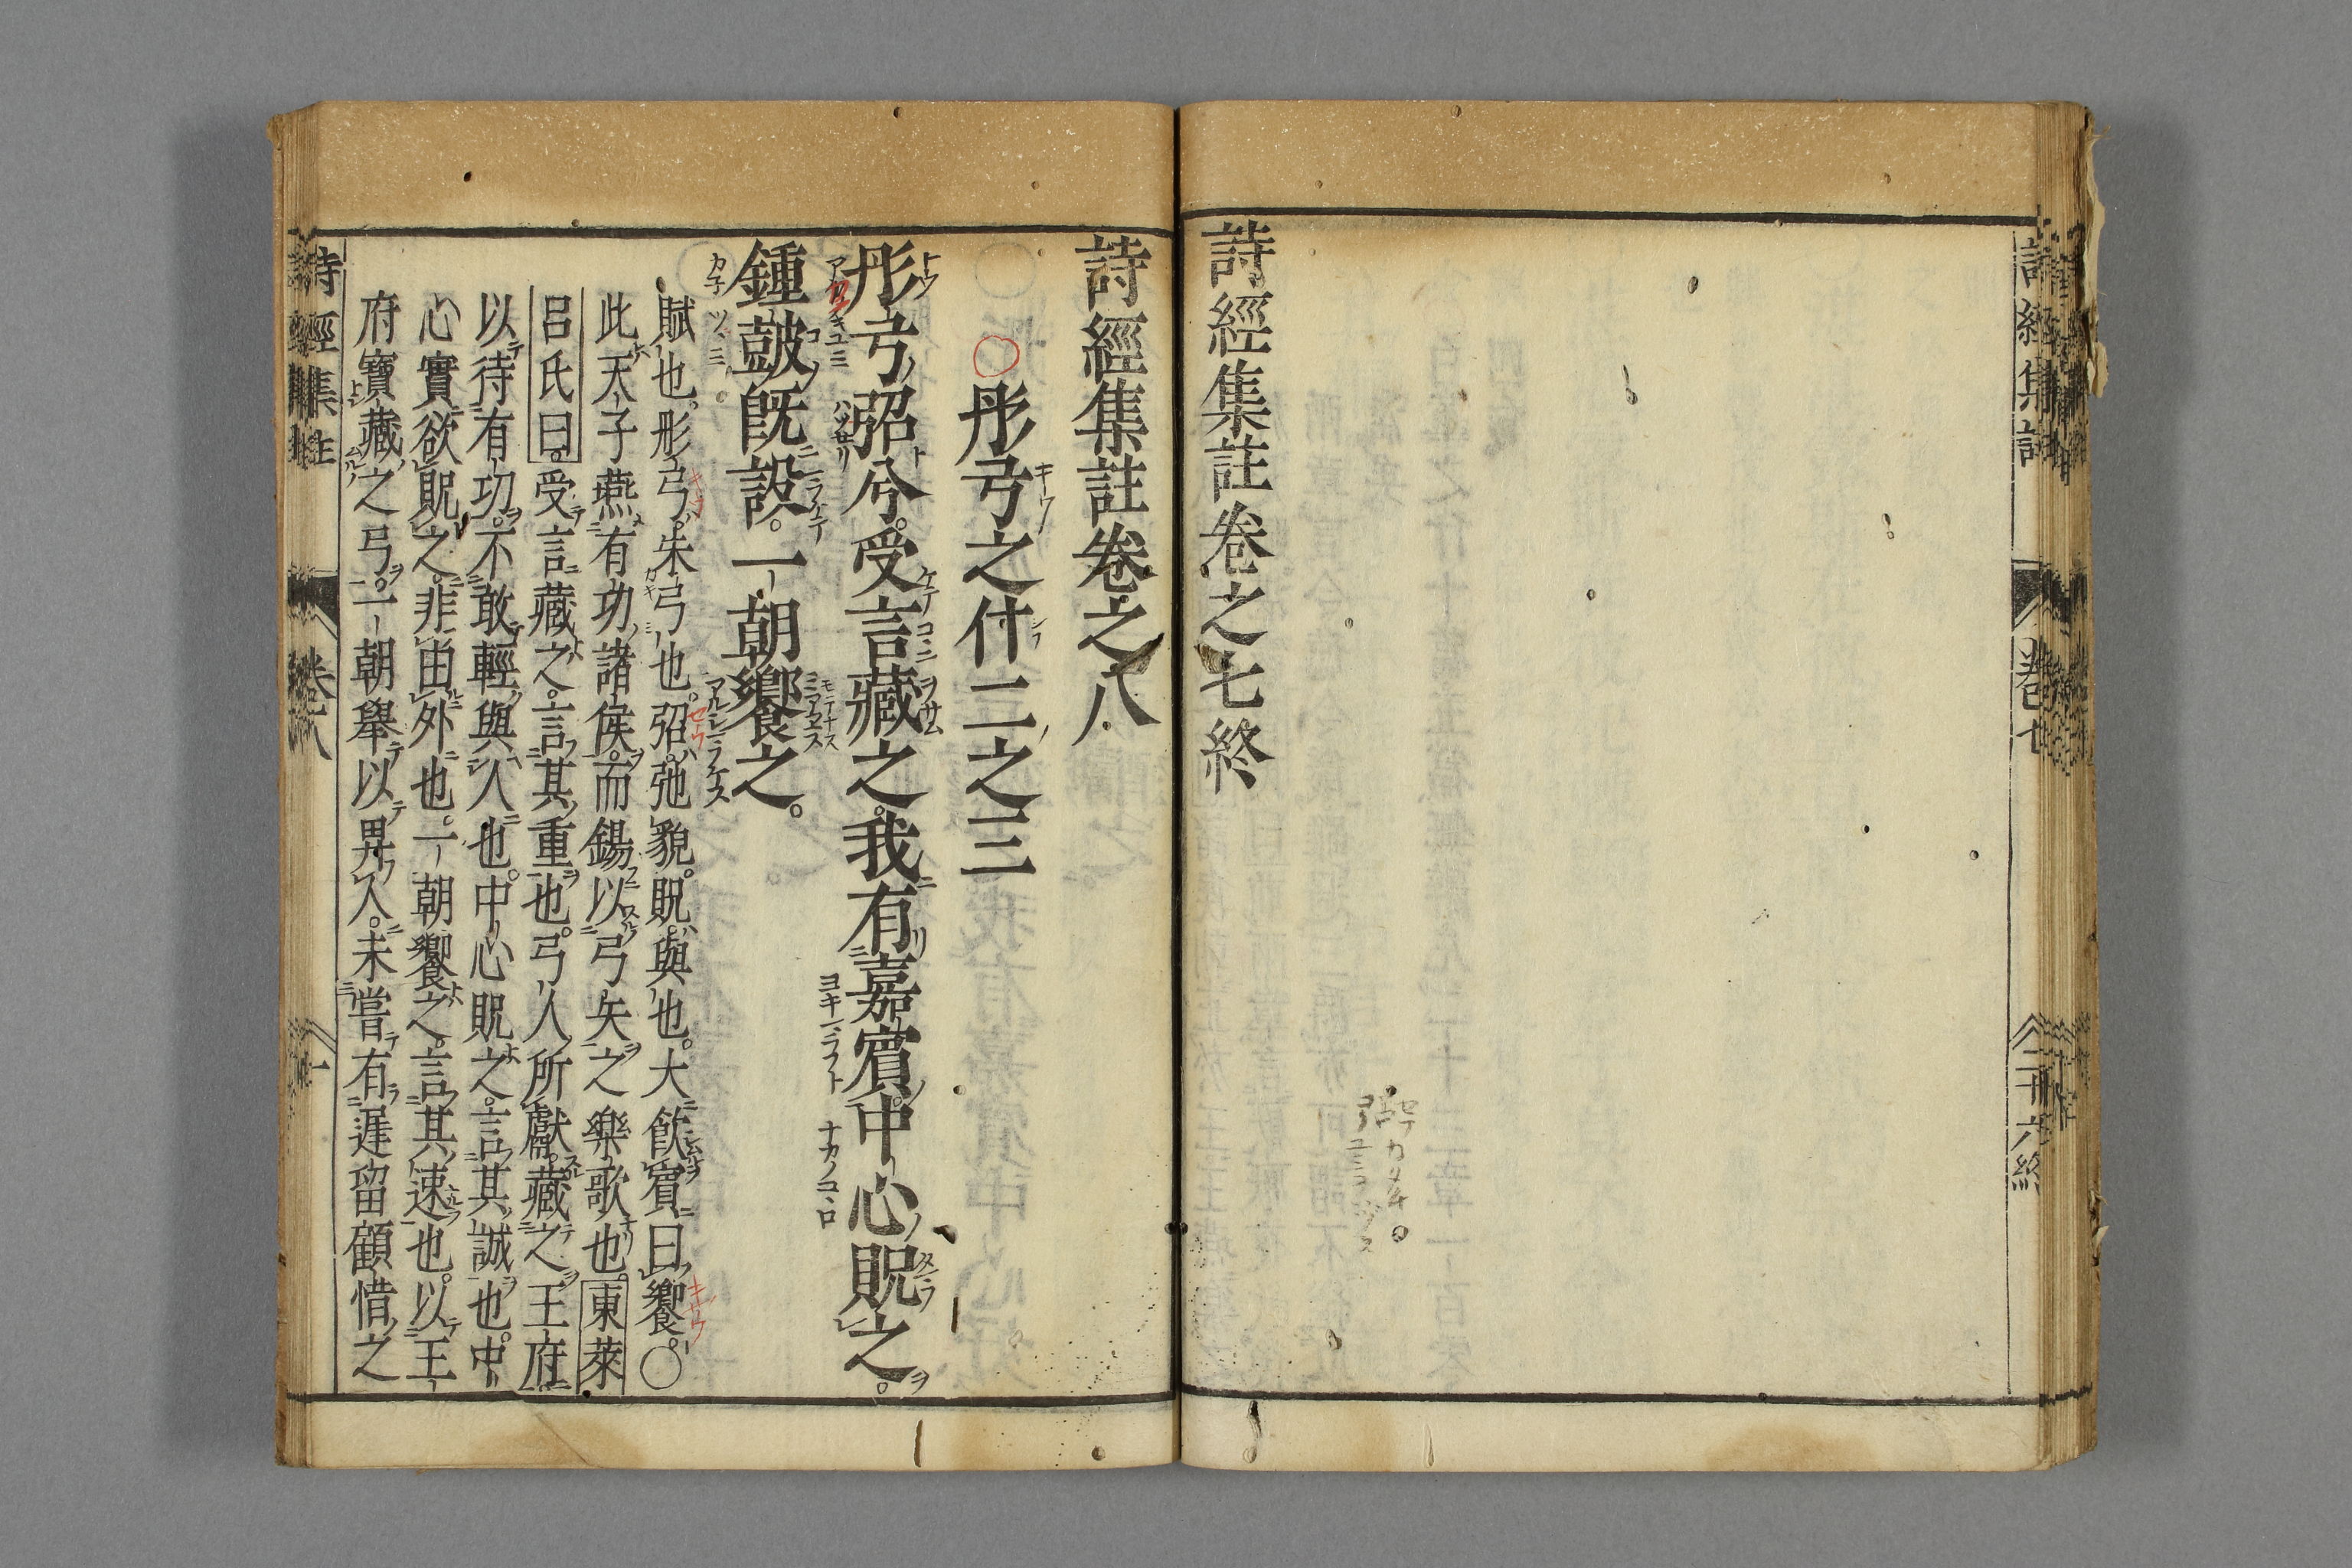 詩經集註卷之七終
詩經集註卷之八
彤弓之什二之三
彤弓弨兮。受言藏之。我有嘉賓。中心貺之。
鍾皷旣設。一朝饗之。
賦也。彤弓。朱弓也。弨。弛貌。貺。與也。大飮賓曰饗。○
此天子燕有功諸侯。而錫以弓矢之樂歌也。東萊
呂氏曰。受言藏之。言其重也。弓人所獻。藏之王府
以待有功。不敢輕與人也。中心貺之。言其誠也。中
心實欲貺之。非由外也。一朝饗之。言其速也。以王
府寶藏之弓。一朝舉以畀人。未嘗有遲留顧惜之
詩經集註
卷八
一